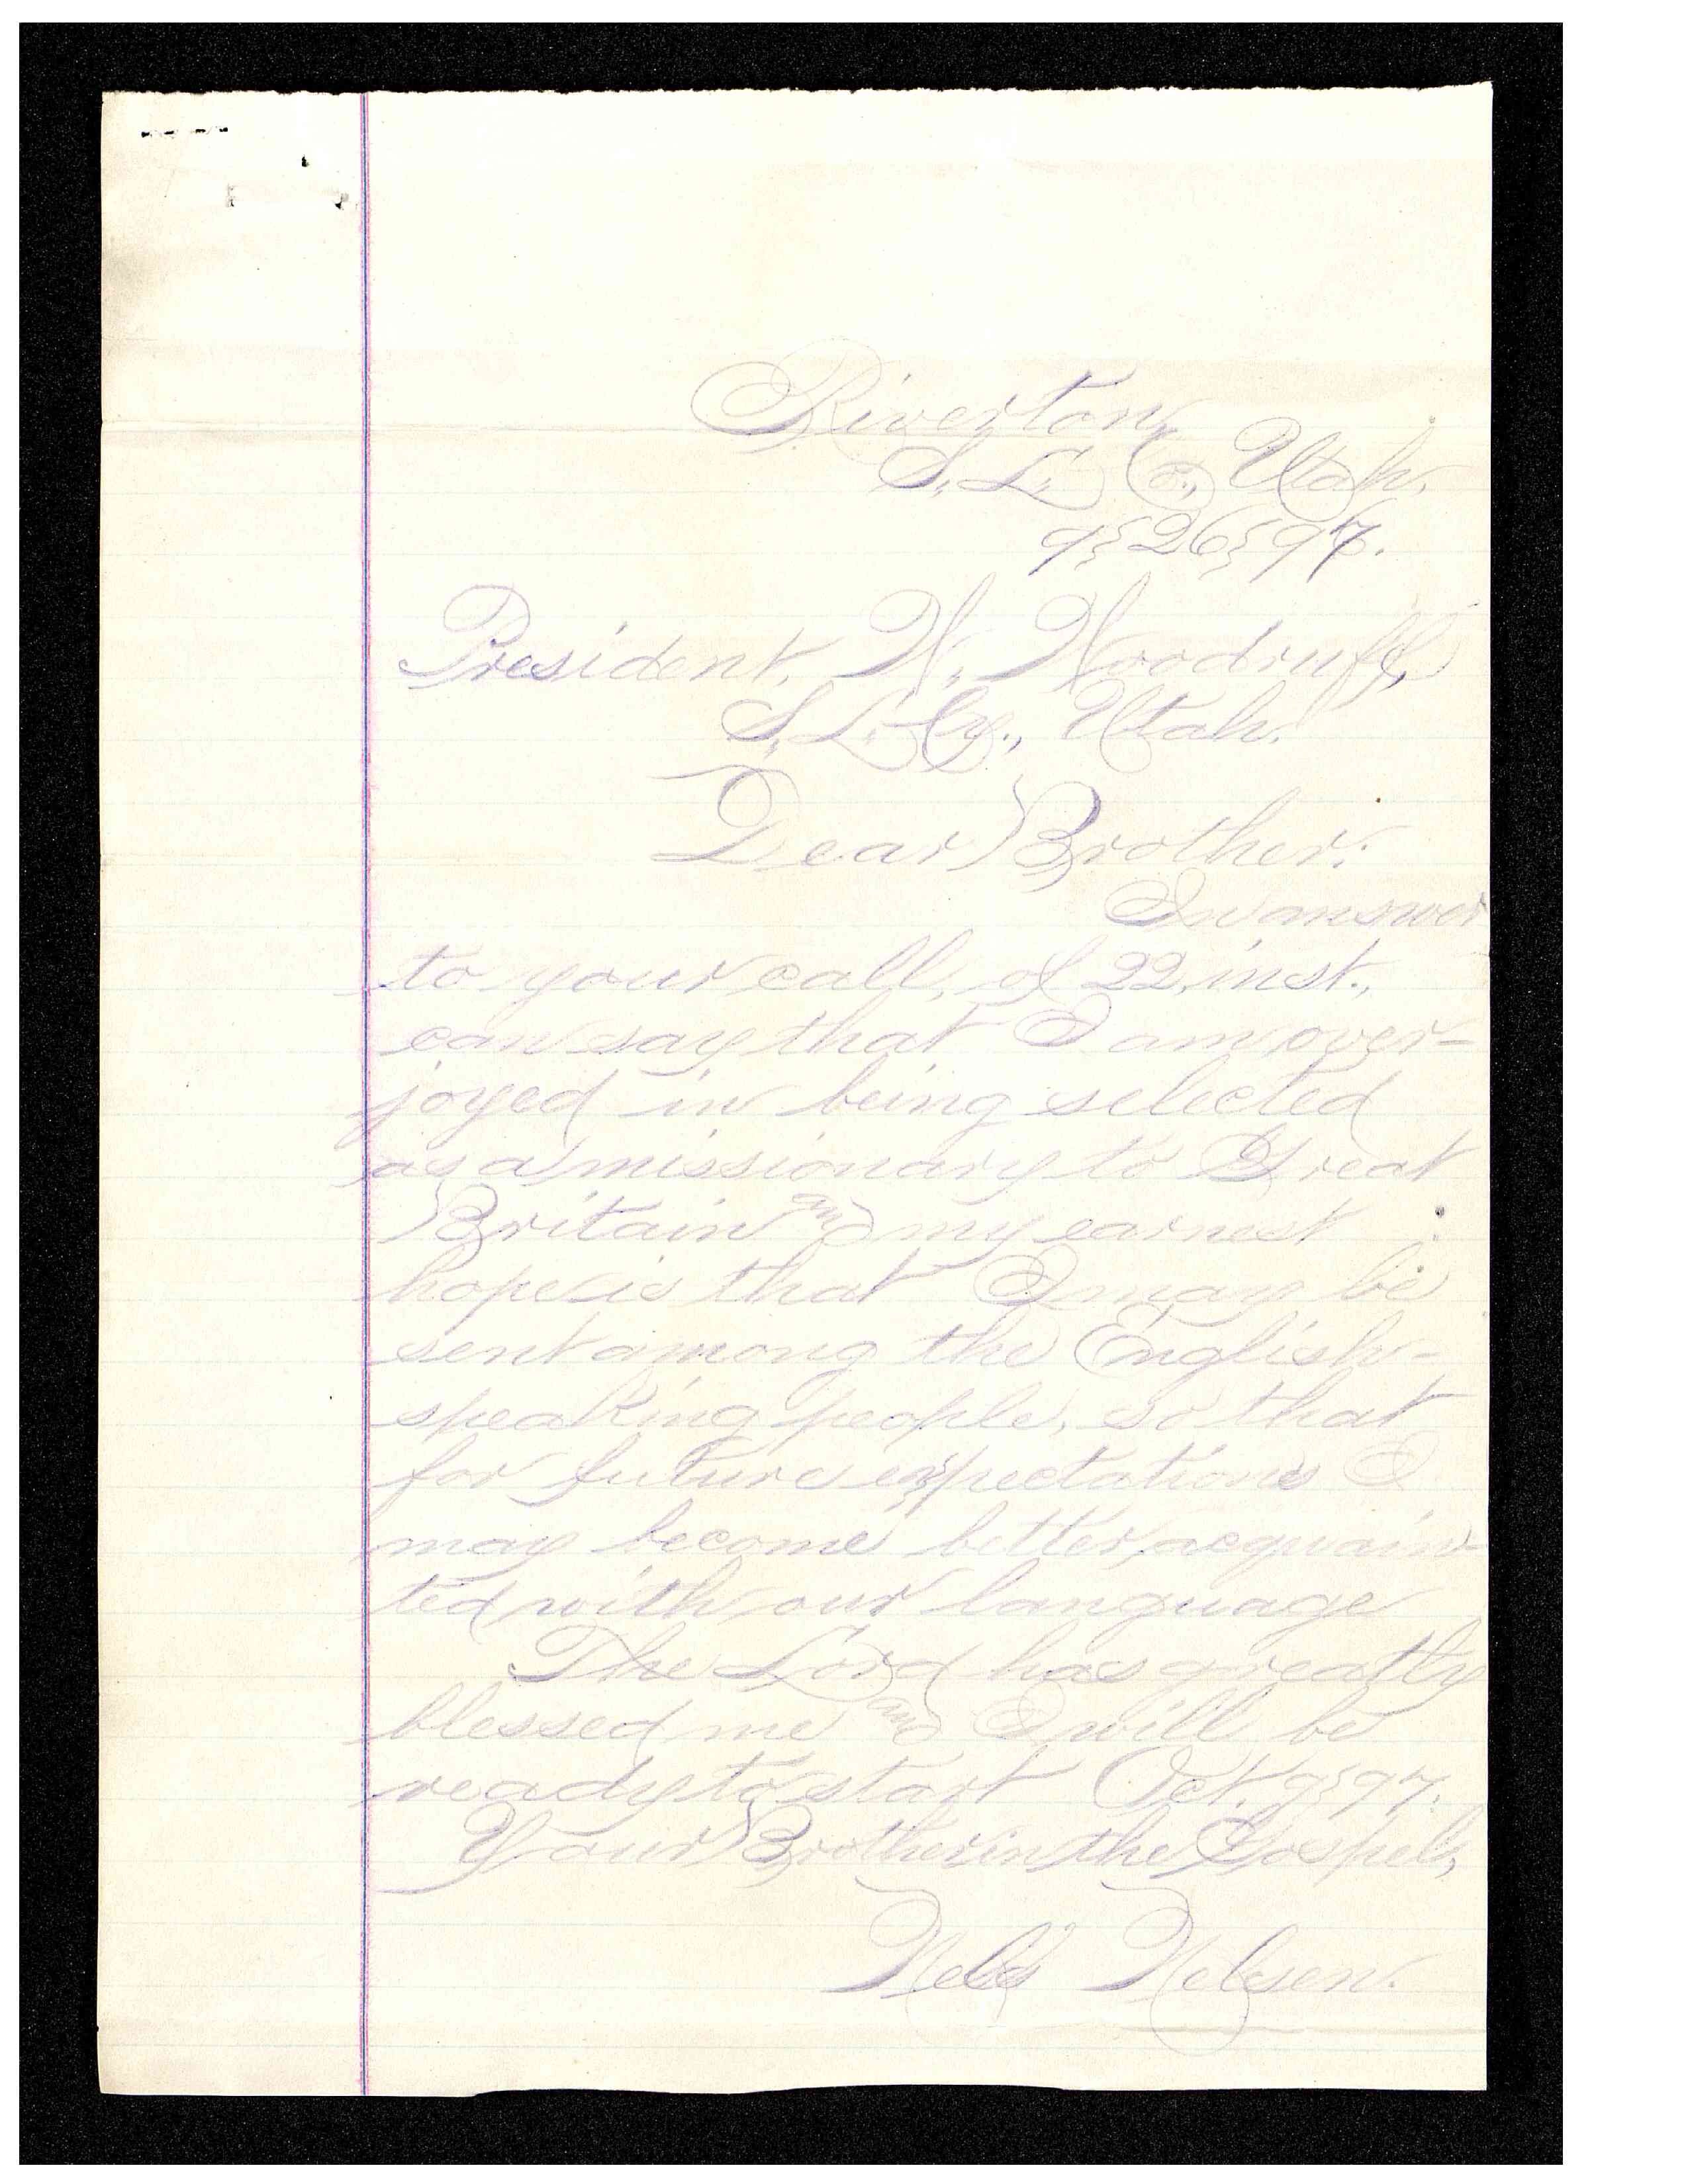 Riverton,
S. L. Co., Utah.
9}26}97.
President, W. Woodruff,
S. L. Cy., Utah.
Dear Brother:
In answer
to your call, of 22, inst.,
can say that I am over-
joyed in being selected
as a missionary to Great
Britain and my earnest
hope is that I may be
sent among the English-
speaking people, so that
for future expectations I
may become better acquain-
ted with our language
The Lord has greatly
blessed me and I will be
ready to start Oct. 9}97.
Your Brother in the Gospel,
Nels Nelsen.